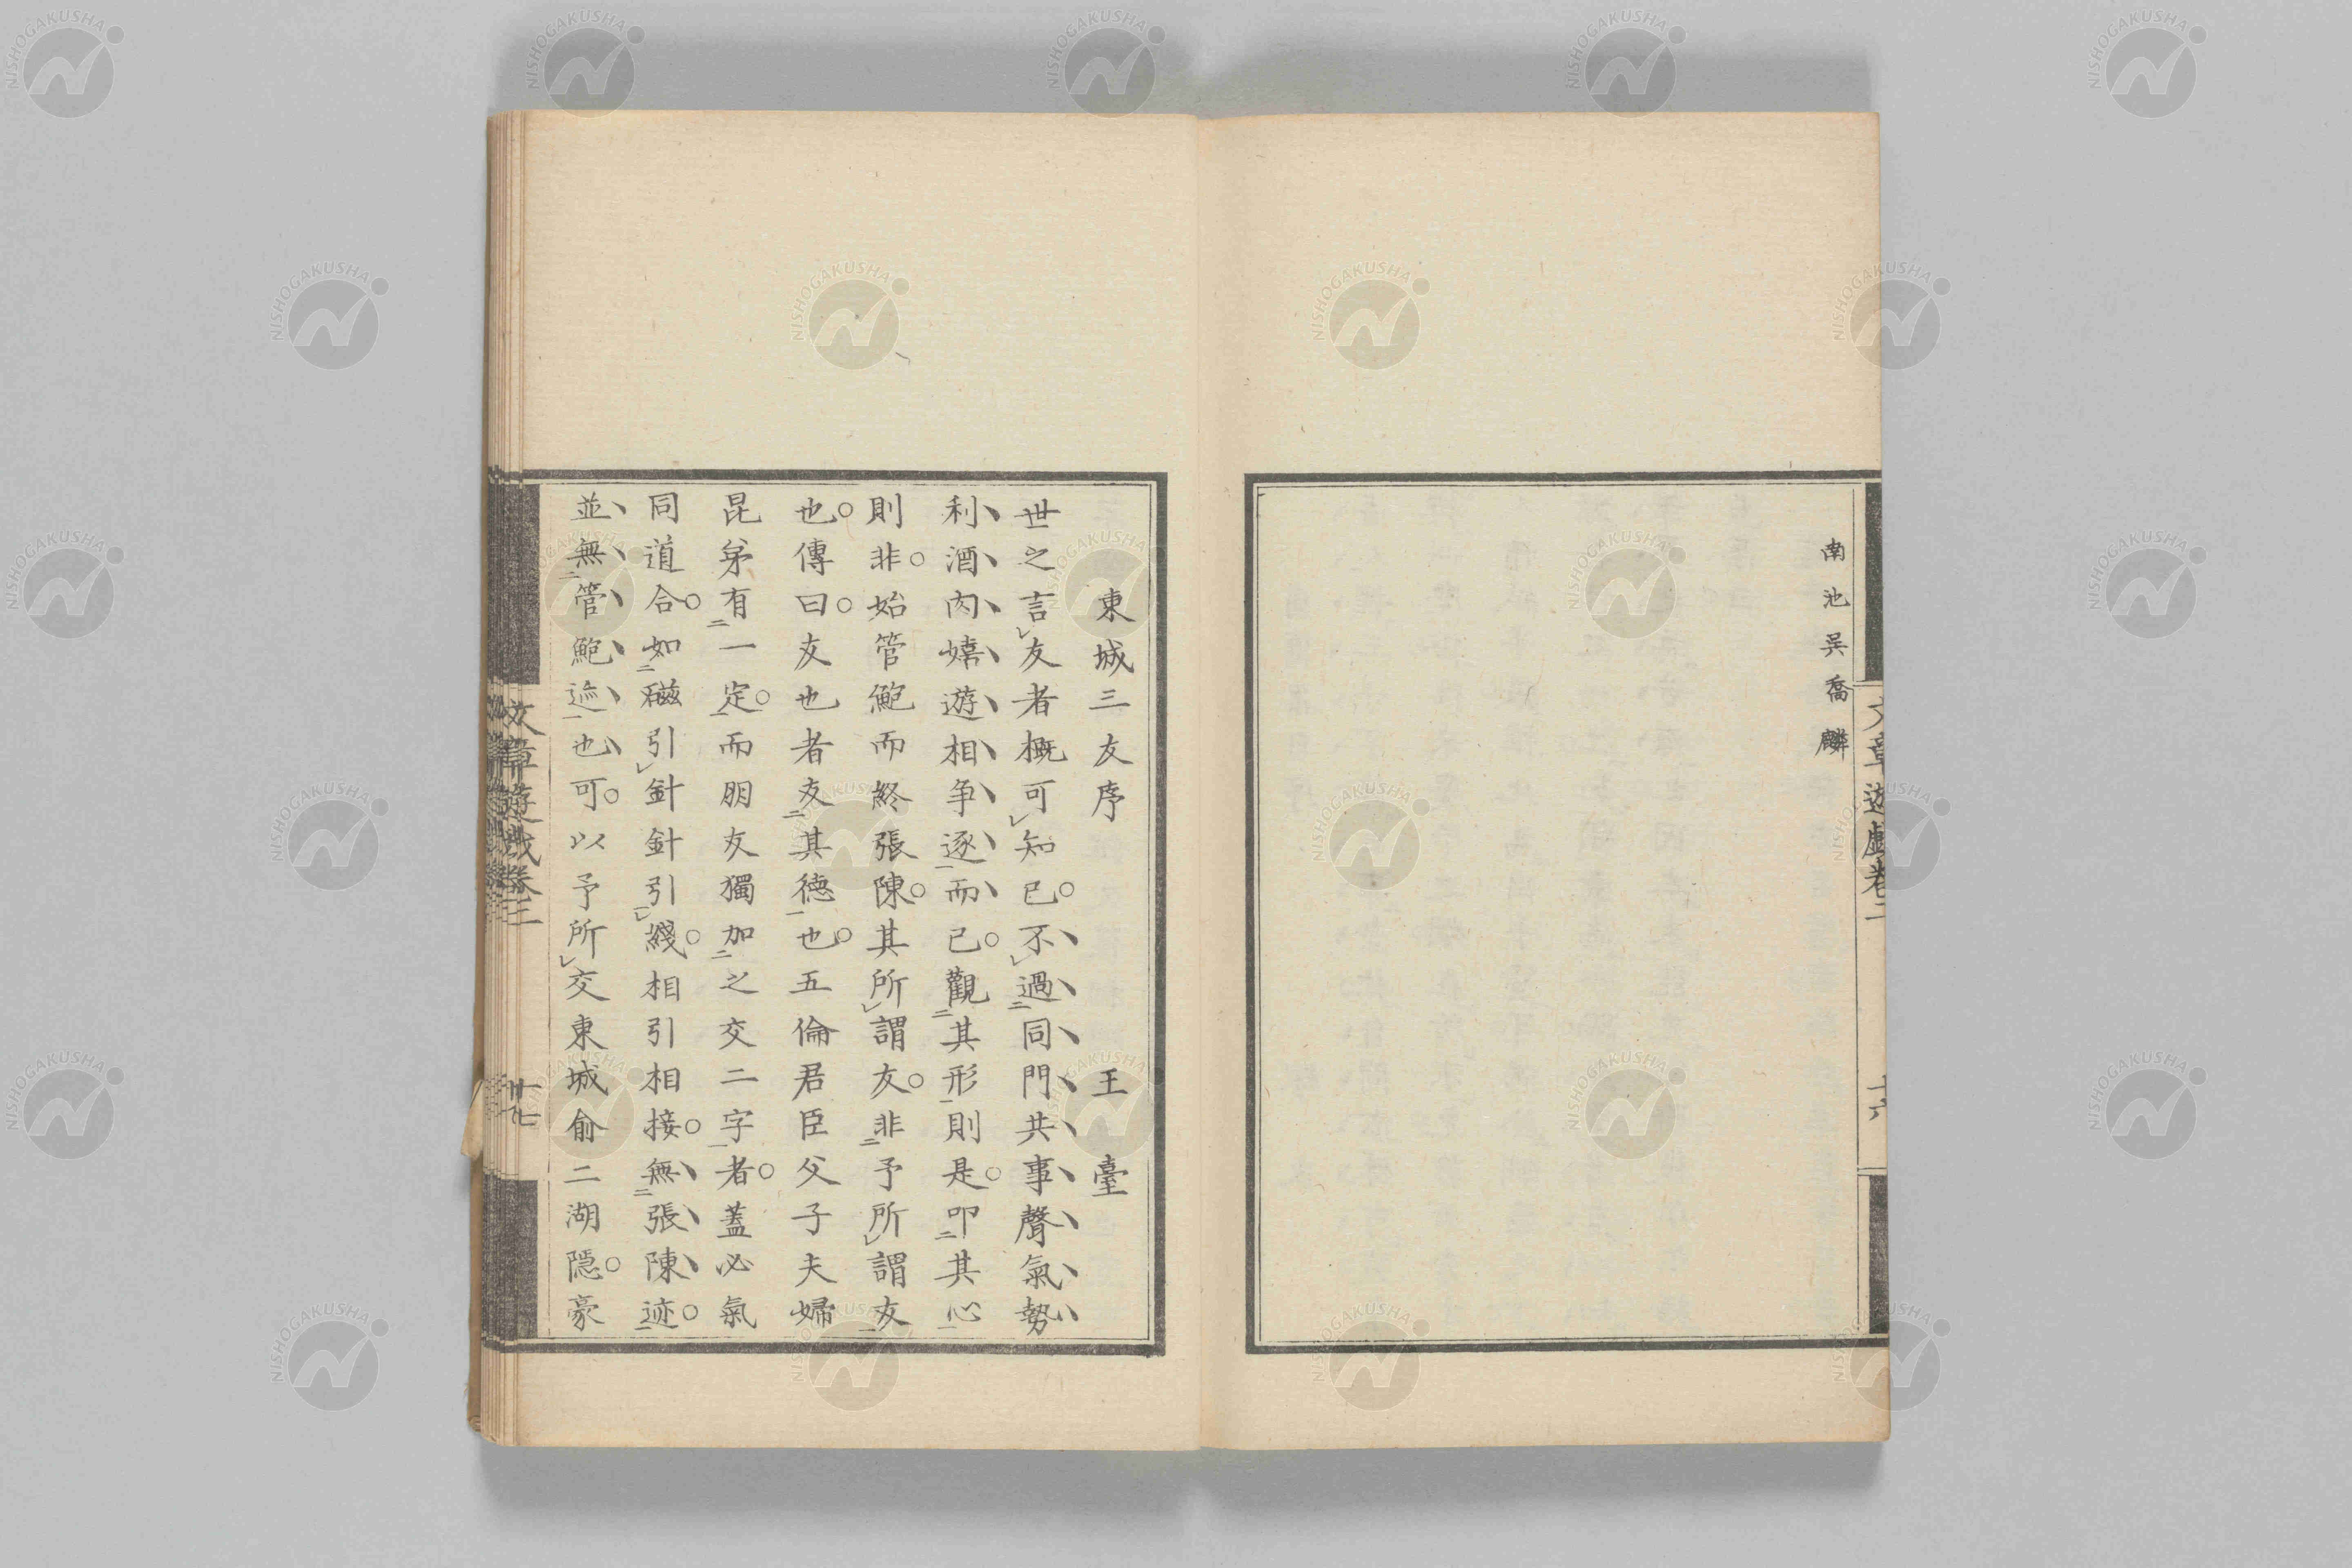 南池吳喬麟
文章遊戲卷二
十六
東城三友序 王臺
世之言友者概可知已不過同門共事聲氣勢
利酒肉嬉遊相爭逐而已觀其形則是叩其心
則非始管鮑而終張陳其所謂友非予所謂友
也傳曰友也者友其德也五倫君臣父子夫婦
昆弟有一定而朋友獨加之交二字者蓋必氣
同道合如磁引針針引綫相引相接無張陳迹
並無管鮑迹也可以予所交東城俞二湖隱豪
文章遊戲卷三
十七
NISHOGAKUSHA